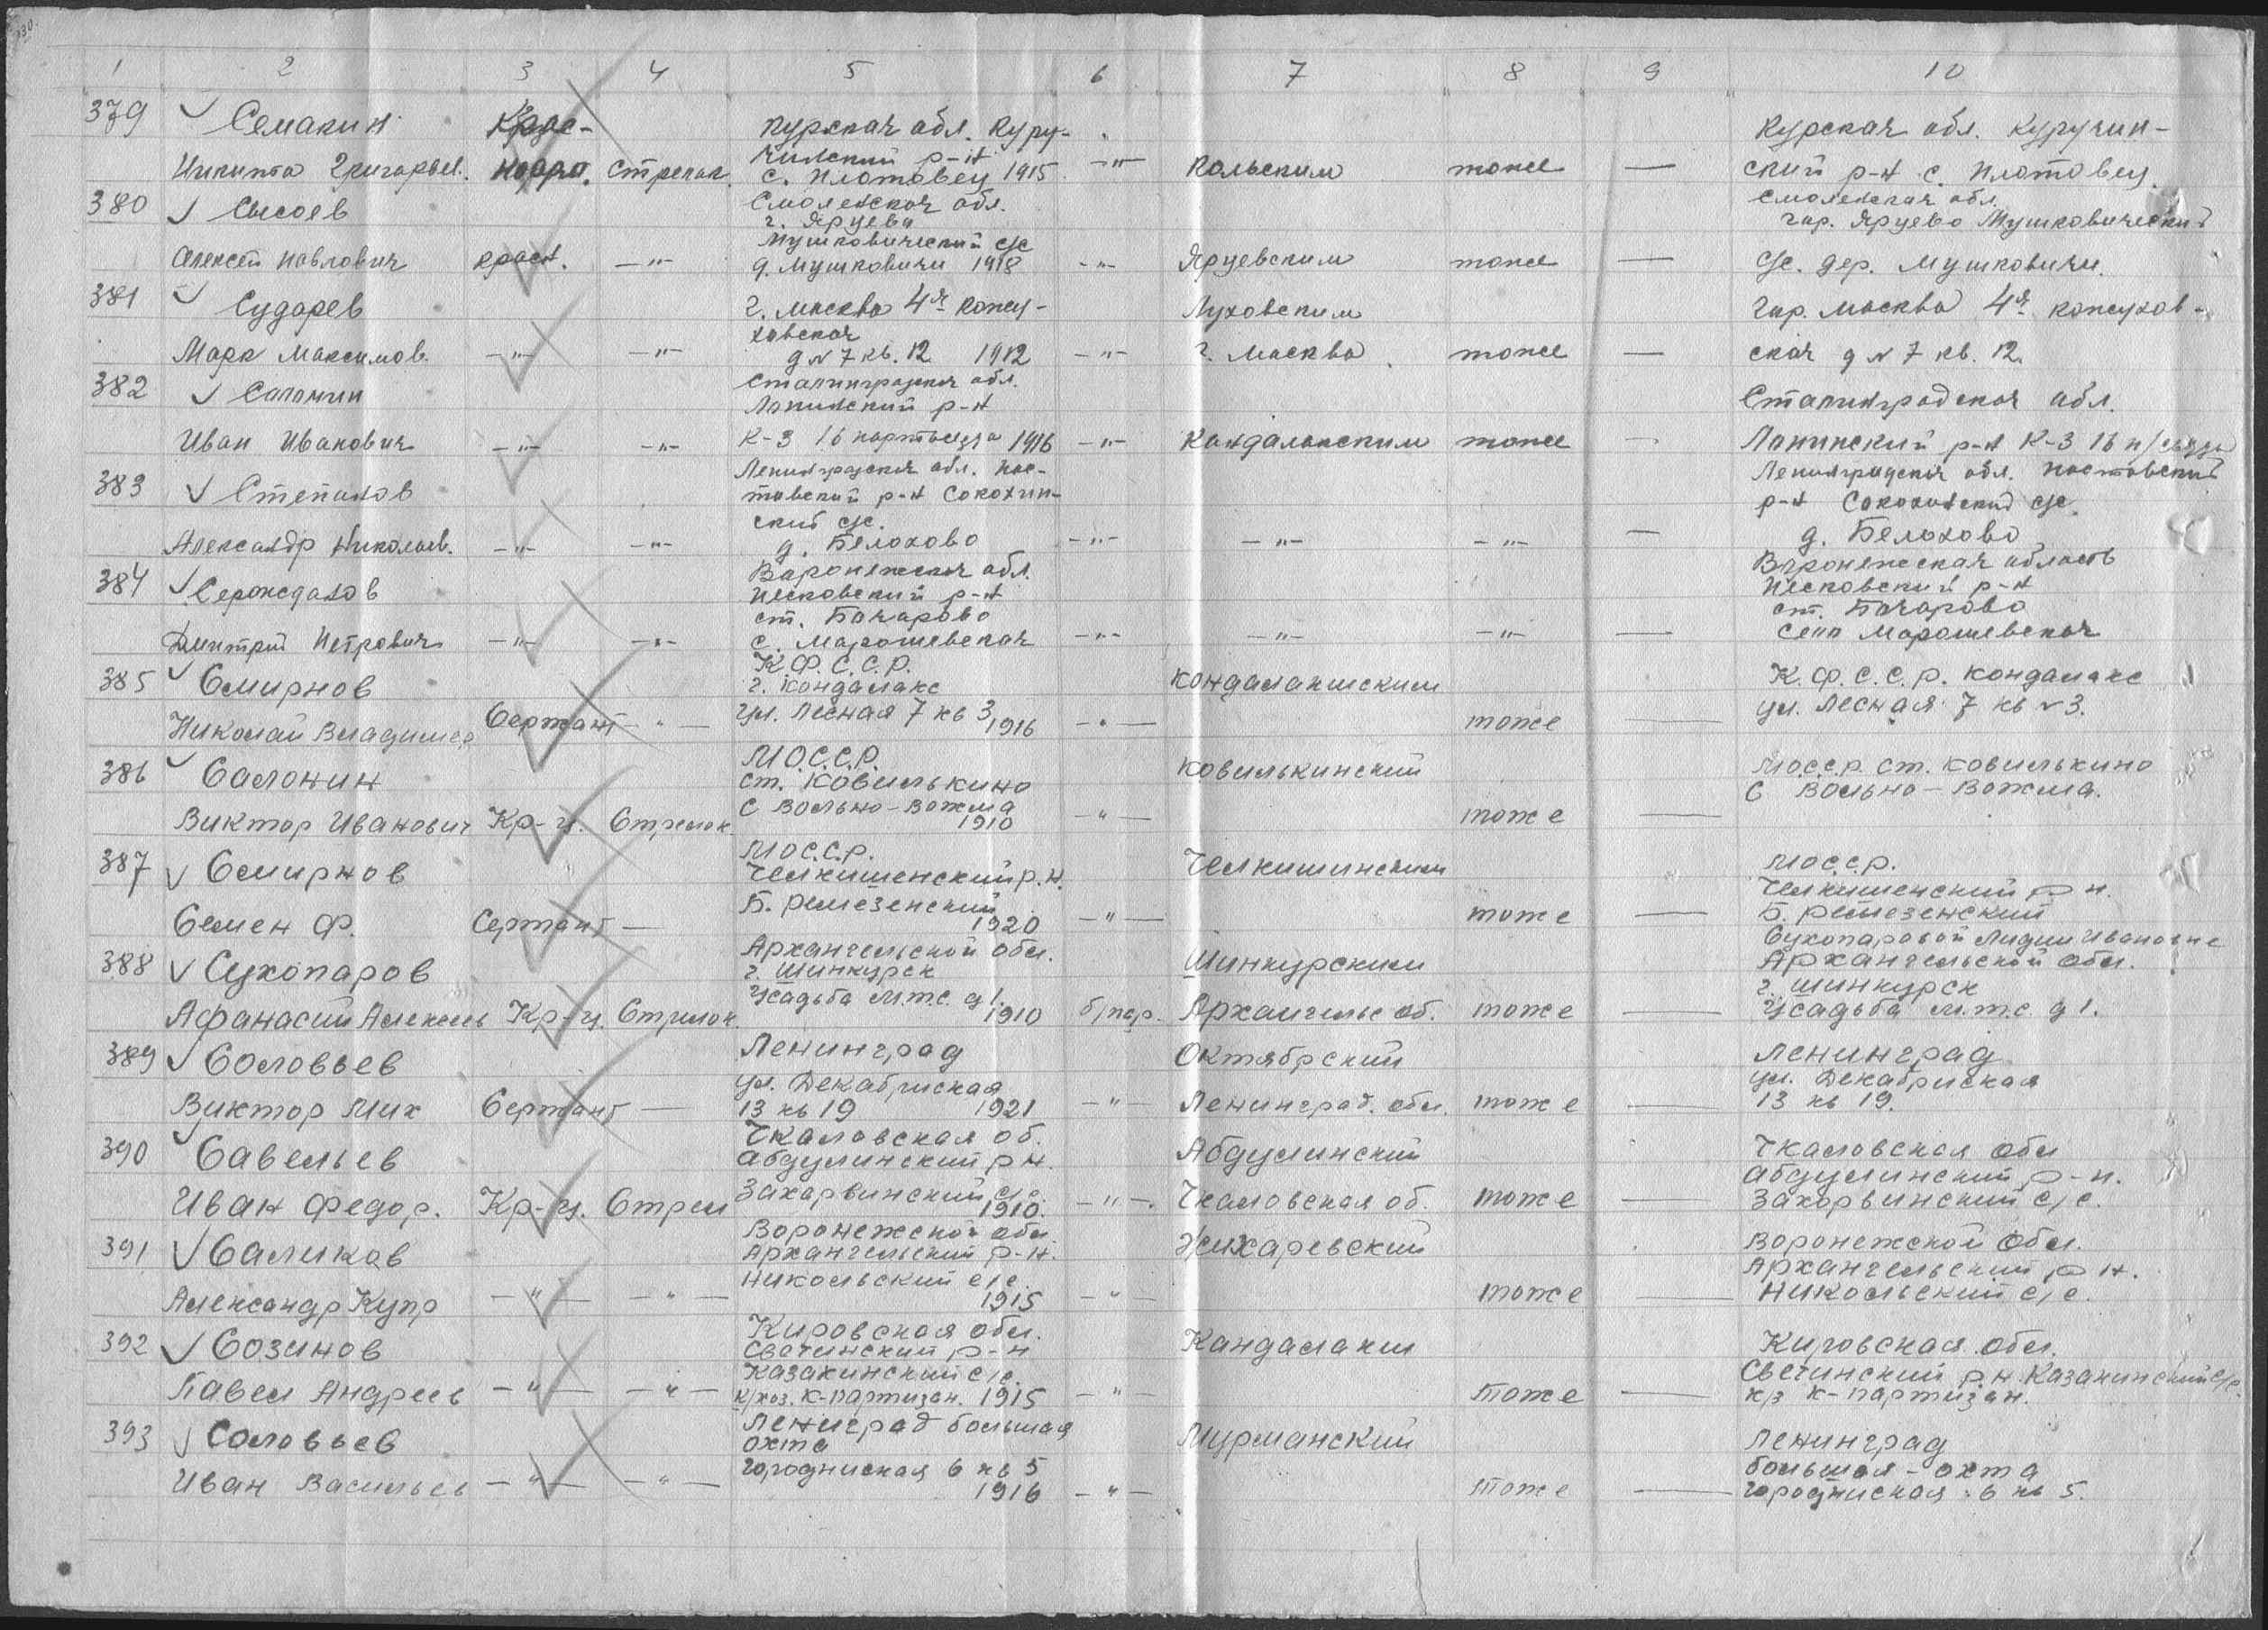 1 2 3 4 5 6 7 8 9 10
379 Семакин Крас- Курская обл. Куру- Курская обл. Куручин-
чинский р-н
Никита Григорьев. ноарм. Стрелок. с. Плотовец 1915 -"- Кольским тоже — ский р-н с. Плотовец.
380 Сысоев Смоленская обл. Смоленская обл.
г. Ярцево гор. Ярцево Мушковический
Мушковический с/с
Алексей Павлович красн. -"- д. Мушковичи 1918 -"- Ярцевским тоже — с/с. дер. Мушковичи.
381 Сударев г. Москва 4я Кожу- Луховским гор. Москва 4я кожухов-
ховская
Марк Максимов. -"- -"- д № 7 кв. 12 1912 -"- г. Москва тоже — ская д № 7 кв. 12.
382 Саломин Сталинградская обл. Сталинградская обл.
Лапинский р-н
Иван Иванович -"- -"- К-з 16 партсъезда 1916 -"- Кандалакским тоже — Лапинский р-н К-з 16 п/съезда
383 Степанов Ленинградская обл. Пос- Ленинградская обл. Постовский
товский р-н Сокохин- р-н Сокохинский с/с.
ский с/с.
Александр Николаев. -"- -"- д. Белохово -"- -"- -"- — д. Белохово
384 Серождахов Воронежская обл. Воронежская область
Песковский р-н Песковский р-н
ст. Бачарово ст. Бачарово
Дмитрий Петрович -"- -"- с. Марошевская -"- -"- -"- — село Марошевская
385 Смирнов К.Ф.С.С.Р. Кондалакшским К.Ф.С.С.Р. Кондалакс
г. Кондалакс
Николай Владимер Сержант -"- ул. Лесная 7 кв 3 1916 -"- тоже — ул. Лесная 7 кв № 3.
386 Салонин М.О.С.С.Р. Ковилькинский М.О.С.С.Р. ст. Ковилькино
ст. Ковилькино с Вольно-Вожма.
Виктор Иванович Кр-ц. Стрелок с Вольно-Вожма 1910 -"- тоже —
387 Смирнов МОС.С.Р. Челкишинским МОССР.
Челкишенский р.н. Челкишенский р-н.
Семен Ф. Сержант — Б. ремезенский 1920 -"- тоже — Б. ремезенский
388 Сухопаров Архангельской обл. Шинкурским Сухопаровой Лидии Ивановне
г. Шинкурск Архангельской обл.
г. Шинкурск
Афанасий Алексеев Кр-ц. Стрелок Усадьба м.т.с. д 1. 1910 б/пар. Архангельс об. тоже — Усадьба м.т.с. д 1.
389 Соловьев Ленинград Октябрский Ленинград
ул. Декабриская ул. Декабриская
Виктор Мих Сержант — 13 кв 19 1921 -"- Ленинград. обл. тоже — 13 кв 19.
390 Савельев Чкаловская об. Абдулинский Чкаловская обл
Абдулинский р н. Абдулинский р-н.
Иван Федор. Кр-ц. Стрел Захарвинский с/с. 1910. -"- Чкаловская об. тоже — Захорвинский с/с.
391 Саликов Воронежской обл. Жихаревский Воронежской обл.
Архангельский р-н. Архангельский р н.
Александр Купр -"- -"- Никольский с/с. 1915 -"- тоже — Никольский с/с.
392 Созинов Кировская обл. Кандалакш Кировская обл.
Свечинский р-н Свечинский р.н. Казакинский с/с.
Казакинский с/с.
Павел Андреев -"- -"- к/хоз. К-партизан. 1915 -"- тоже — к/з к-партизан.
393 Соловьев Лениград большая Мурманский Ленинград
охта большая-охта
Иван Васильев -"- -"- Городниская 6 кв 5 1916 -"- тоже — Городниская 6 кв 5.